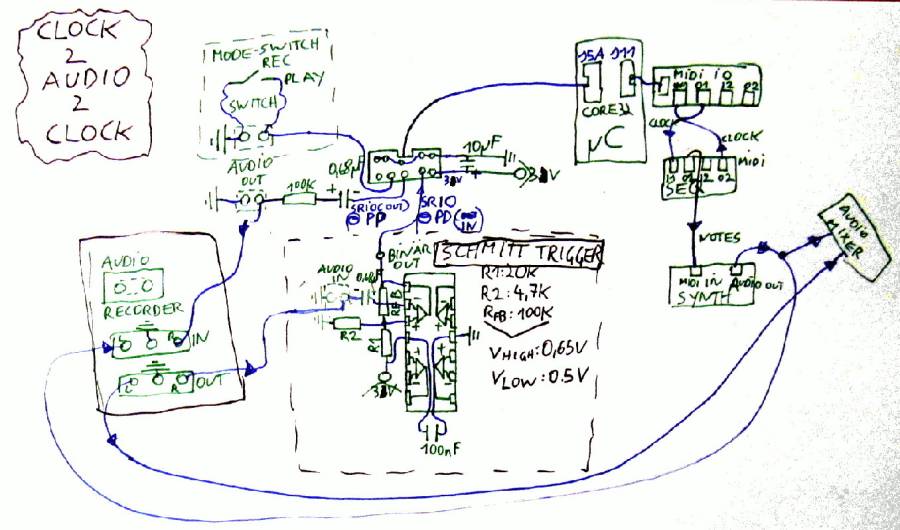 CLOCK
2
AUDIO
2
CLOCK
MODE-SWITCH
REC
PLAY
SWITCH
AUDIO
OUT
100K
+
0,68µF
10µF
+
SR10(OUT)
PD
SR10
PD
IN
J5A J11
CORE32
µC
MIDI IO
O1 I2 O2
CLOCK
CLOCK
MIDI
I1 O1 I2 O2
SEQ
NOTES
MIDI IN AUDIO OUT
SYNTH
AUDIO
MIXER
AUDIO
RECORDER
L R IN
L R OUT
BINÄR
OUT
SCHMITT TRIGGER
AUDIO
IN
RFB
R2
R1
100nF
R1:20K
R2:4,7K
RFB:100K
VHIGH:0,65V
VLOW:0.5V